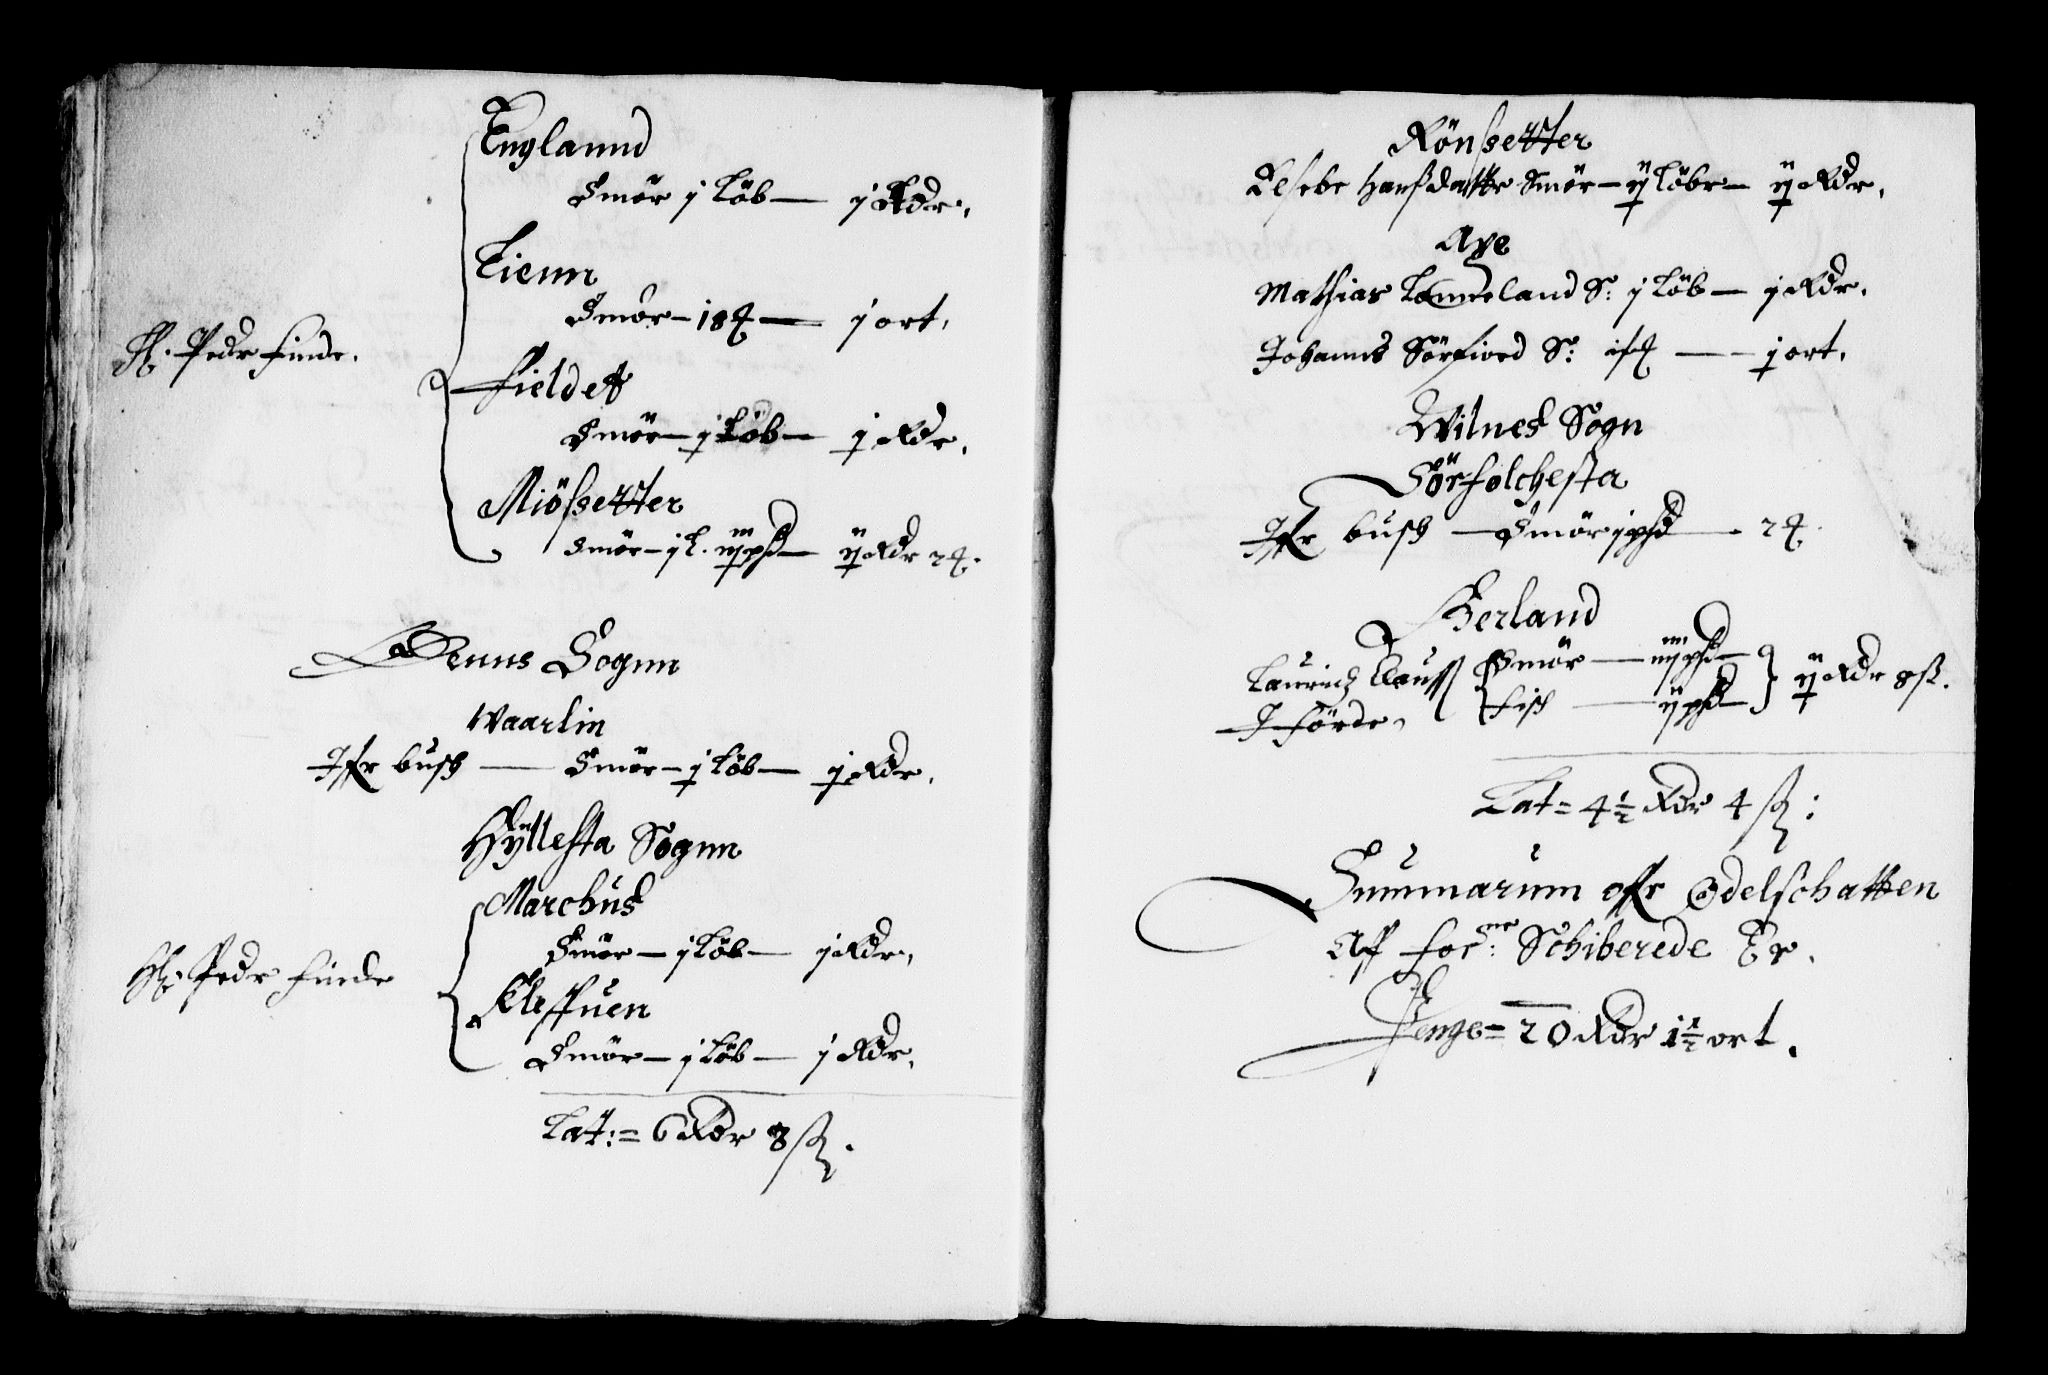 Englannd
Smör j Löb — j Rdr.
Tienn
Smör — 18 ₰ — j ort.
H. Pedr Finde.
Fieldet
Smör — j Löb — j Rdr.
Miösetter
Smör — j L. iij pd — ij Rdr 2 ß.
Sognn
Waarlin
Jfr busch — Smör — j Löb — j Rdr.
Hÿllesta Sognn
Marchus
Smör — j Löb — j Rdr.
H. Pedr Finde
Kleffuen
Smör — j Löb — j Rdr.
Lat: = 6 Rdr 8 ß.
Rönsetter
Elsebe Hansdatter Smör — ij Löbe — ij Rdr.
Aye
Mathias Lanneland S: j Löb — j Rdr.
Johanns Sörfiord S: — j ort.
Wilnes Sogn
Sörfolchesta
Jfr busch — Smör j pd — 2 ß.
Berland
Lauridz Clauss Smör — iiij pd
J Förde Fisch — ij pd ij Rdr 8 ß.
Lat = 4 ½ Rdr 4 ß:
Summarum ofr Odelschatten
Aff for:ne Schiberede Er.
Penge = 20 Rdr 1 ½ ort.